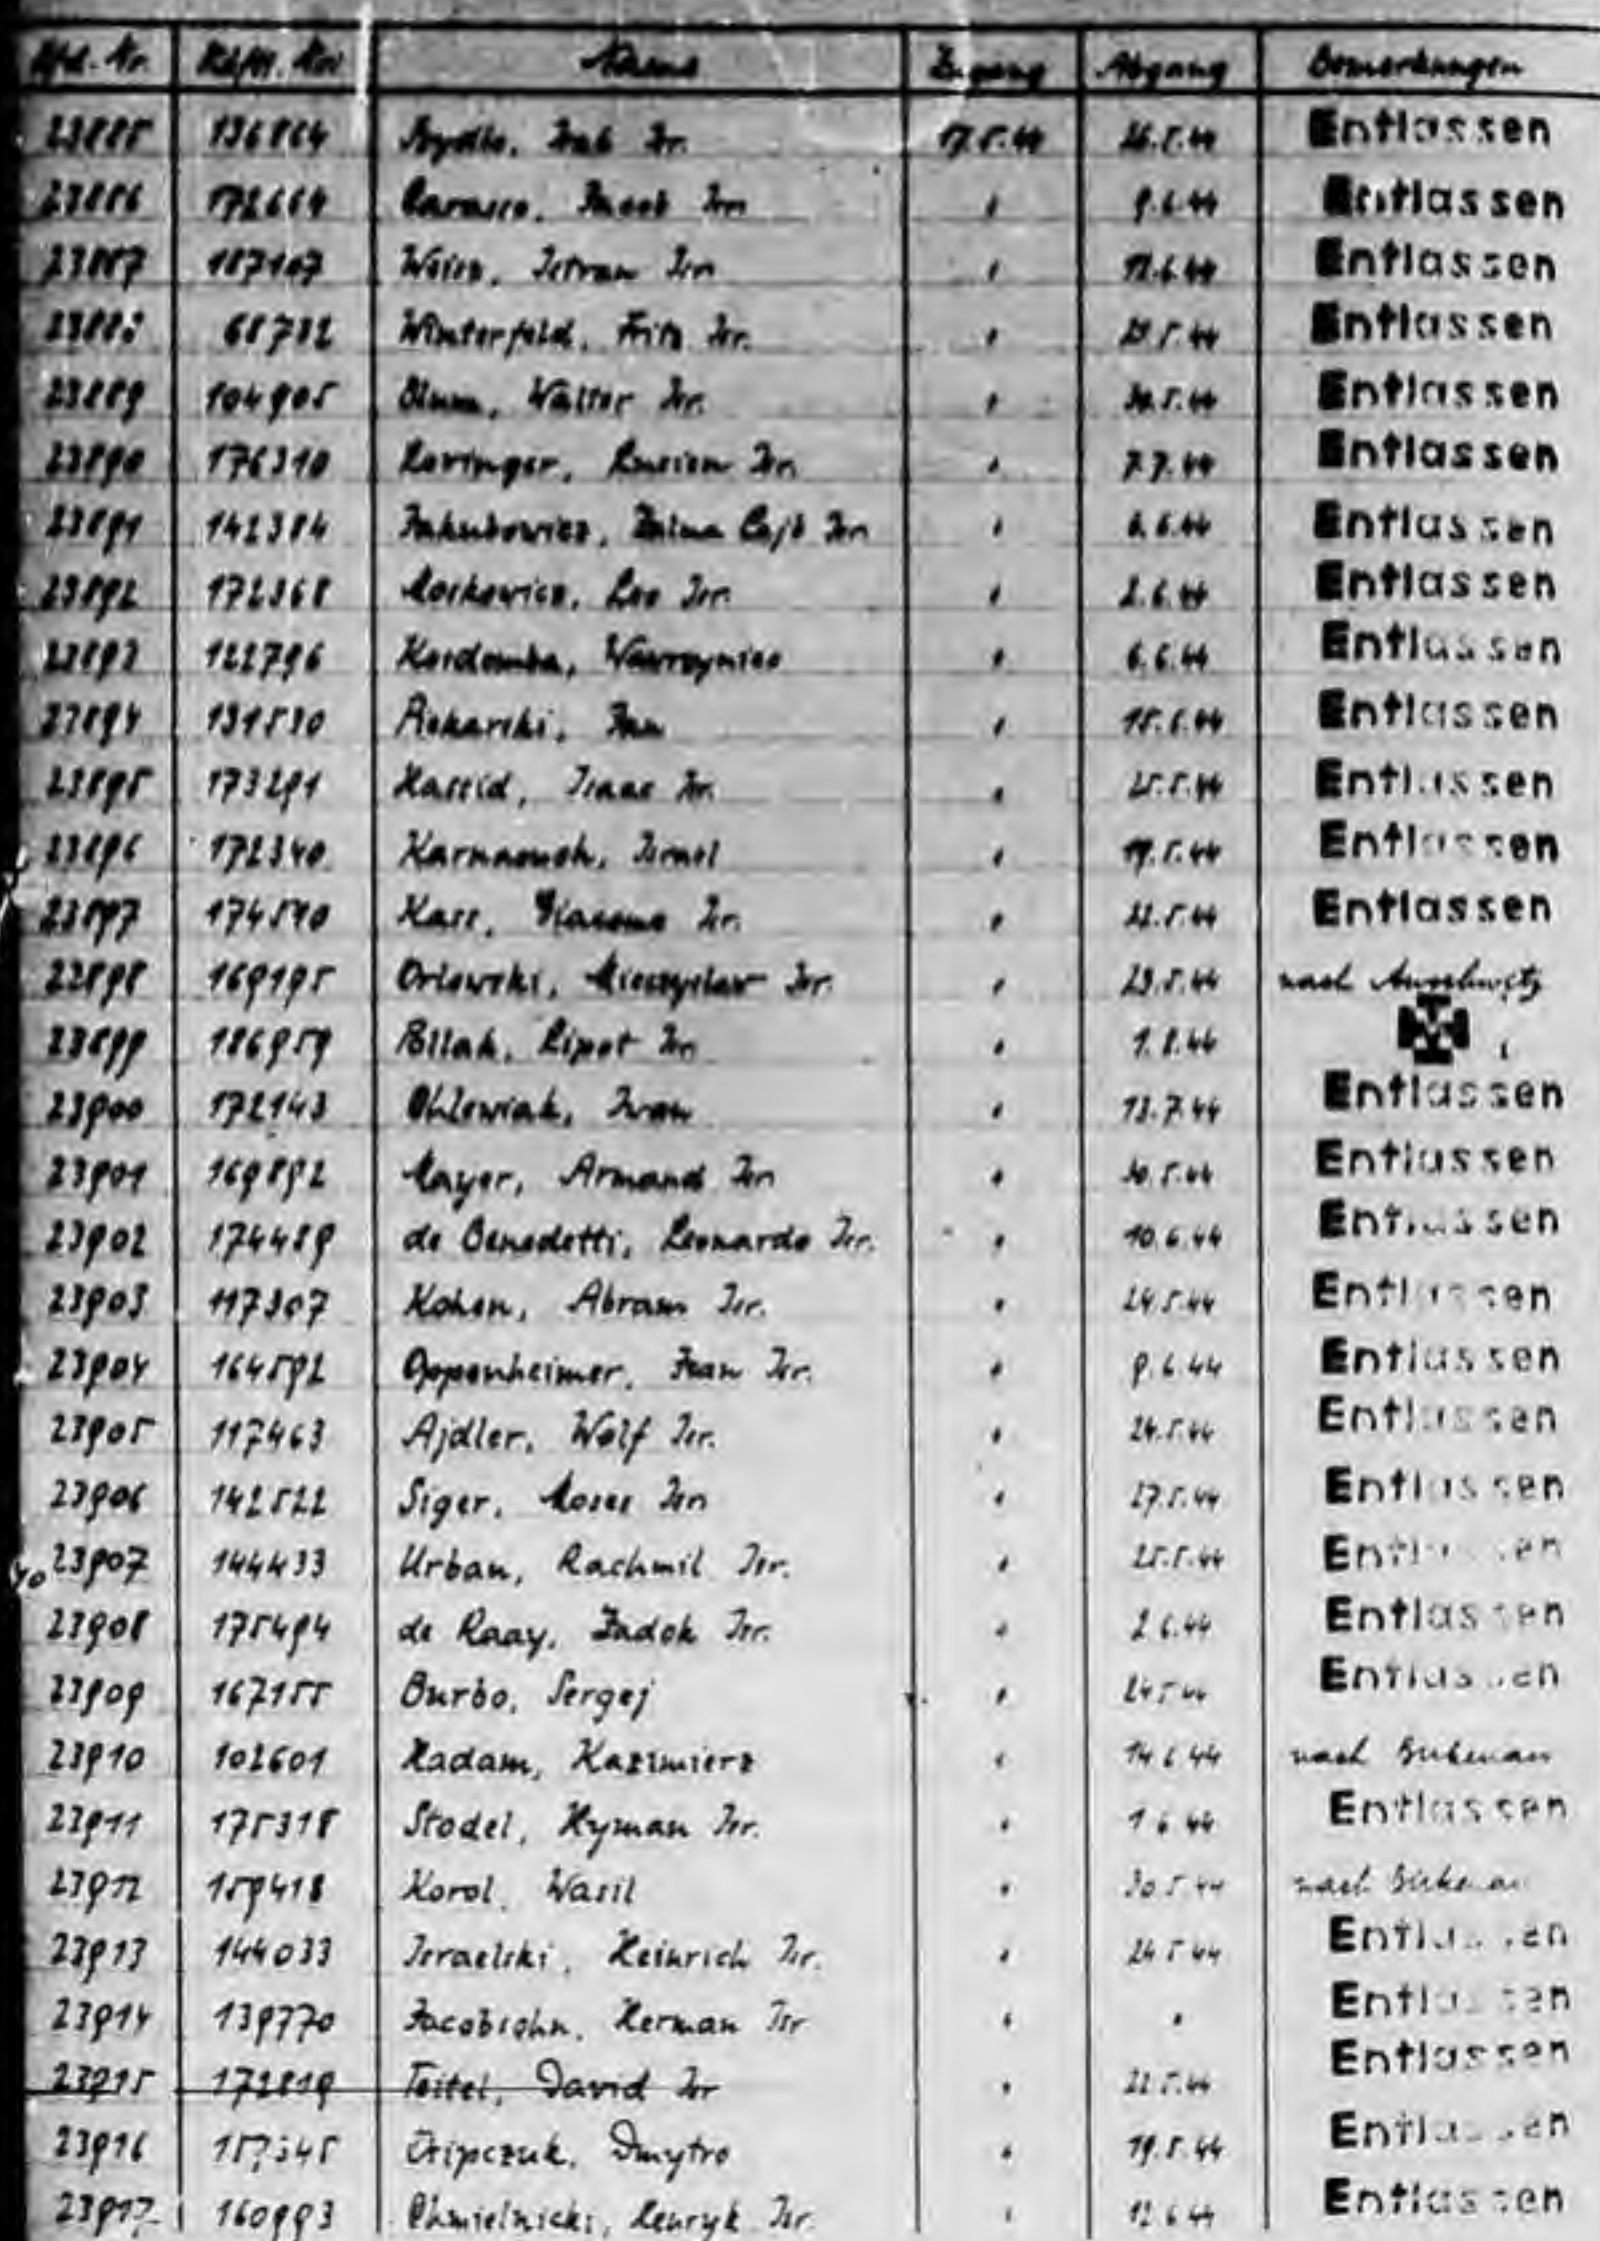 Lfd. Nr. Häftl. Nr. Name Zugang Abgang Bemerkungen
23885 136864 Isr. 17.5.44 26.5.44 Entlassen
23886 172664 Carasso, Jacob Isr. " 9.6.44 Entlassen
23887 187107 Isr. " 12.6.44 Entlassen
23888 68732 Winterfeld, Fritz Isr. " 5.44 Entlassen
23889 104905 Blum, Walter Isr. " 30.5.44 Entlassen
23890 176310 Lucien Isr. " 7.7.44 Entlassen
23891 142384 Jakubowicz, Isr. " 6.6.44 Entlassen
23892 172368 Moskowicz, Leo Isr. " 2.6.44 Entlassen
23893 122796 Kordomba, Wawrzyniec " 6.6.44 Entlassen
23894 131530 Piekarski, Jan " 15.6.44 Entlassen
23895 173291 Hassid, Isaac Isr. " 25.5.44 Entlassen
23896 172340 Karmaouch, Israel " 19.5.44 Entlassen
23897 174540 Kass, Giacomo Isr. " 22.5.44 Entlassen
23898 169195 Orlowski, Mieczyslaw Isr. " 23.5.44 nach Auschwitz
23899 186959 Bilak, Lipot Isr. " 1.8.44
23900 172143 Ohlewiak, Iwan " 13.7.44 Entlassen
23901 169892 Mayer, Armand Isr. " 30.5.44 Entlassen
23902 174489 de Benedetti, Leonardo Isr. " 10.6.44 Entlassen
23903 117307 Kohen, Abram Isr. " 24.5.44 Entlassen
23904 164592 Oppenheimer, Jean Isr. " 9.6.44 Entlassen
23905 117463 Ajdler, Wolf Isr. " 24.5.44 Entlassen
23906 142522 Siger, Moses Isr. " 27.5.44 Entlassen
23907 144433 Urban, Rachmil Isr. " 25.5.44 Entlassen
23908 175494 de Raay, Zadok Isr. " 2.6.44 Entlassen
23909 167155 Burbo, Sergej " 24.5.44 Entlassen
23910 102601 Hadam, Kazimierz " 14.6.44 nach Birkenau
23911 175318 Stodel, Hyman Isr. " 1.6.44 Entlassen
23912 159418 Korol, Wasil " 30.5.44 nach Birkenau
23913 144033 Israelski, Heinrich Isr. " 24.5.44 Entlassen
23914 139770 Jacobsohn, Herman Isr. " " Entlassen
23915 172819 Teitel, David Isr " 22.5.44 Entlassen
23916 157345 Osipczuk, Dmytro " 19.5.44 Entlassen
23917 160993 Chmielnicki, Henryk Isr. " 12.6.44 Entlassen